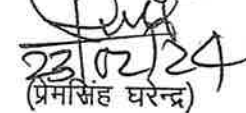 23/02/24
(प्रेमसिंह घरेन्द्र)